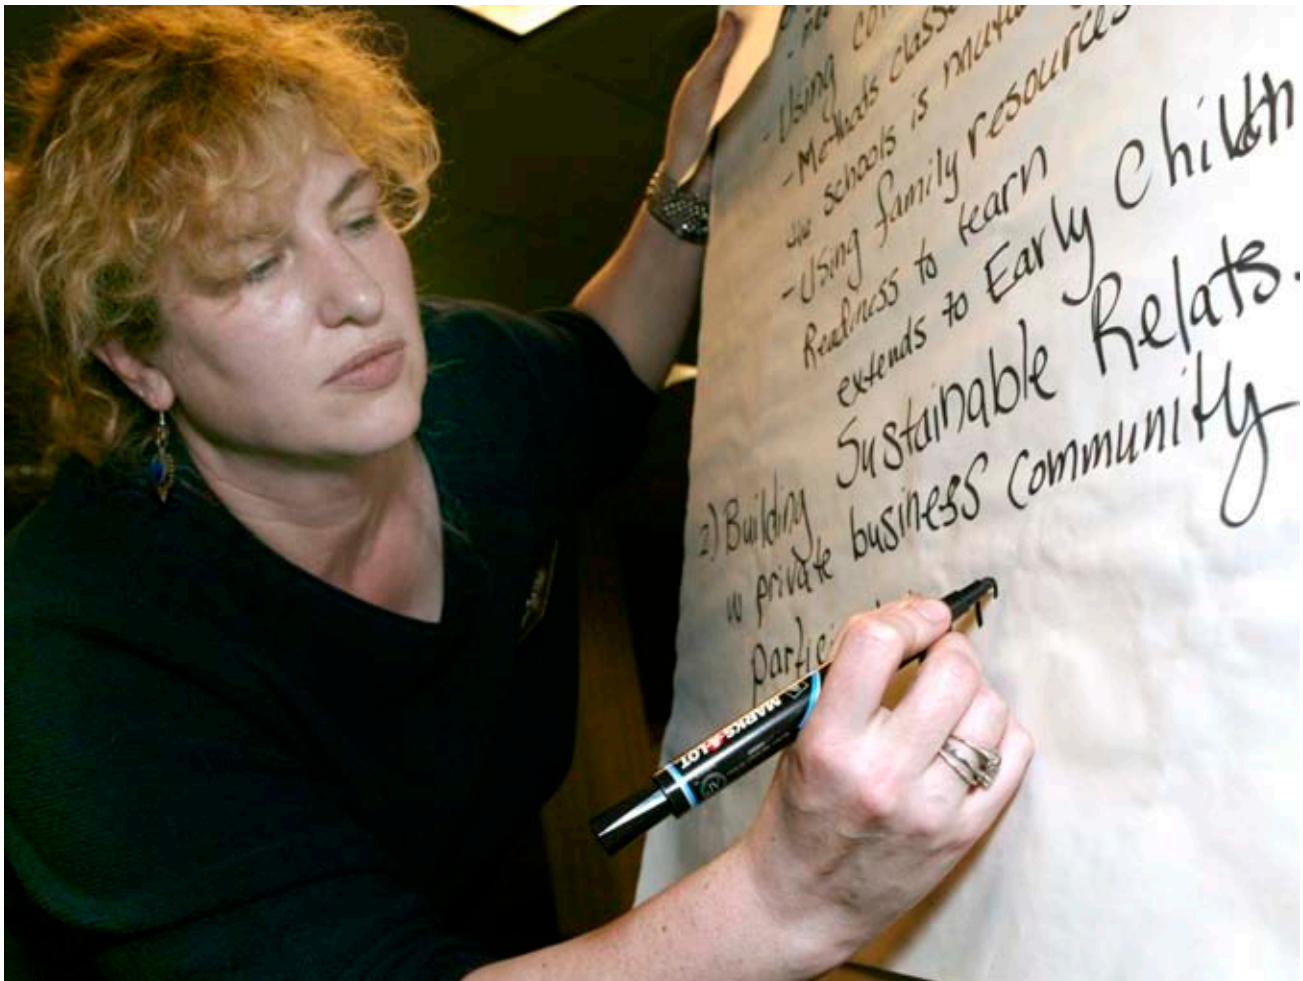 - Using
- Methods class
the schools is mutu
- Using family resources
Readiness to learn
extends to Early Childh
Sustainable Relats.
2) Building
w private business community
partic
MARKS-A-LOT